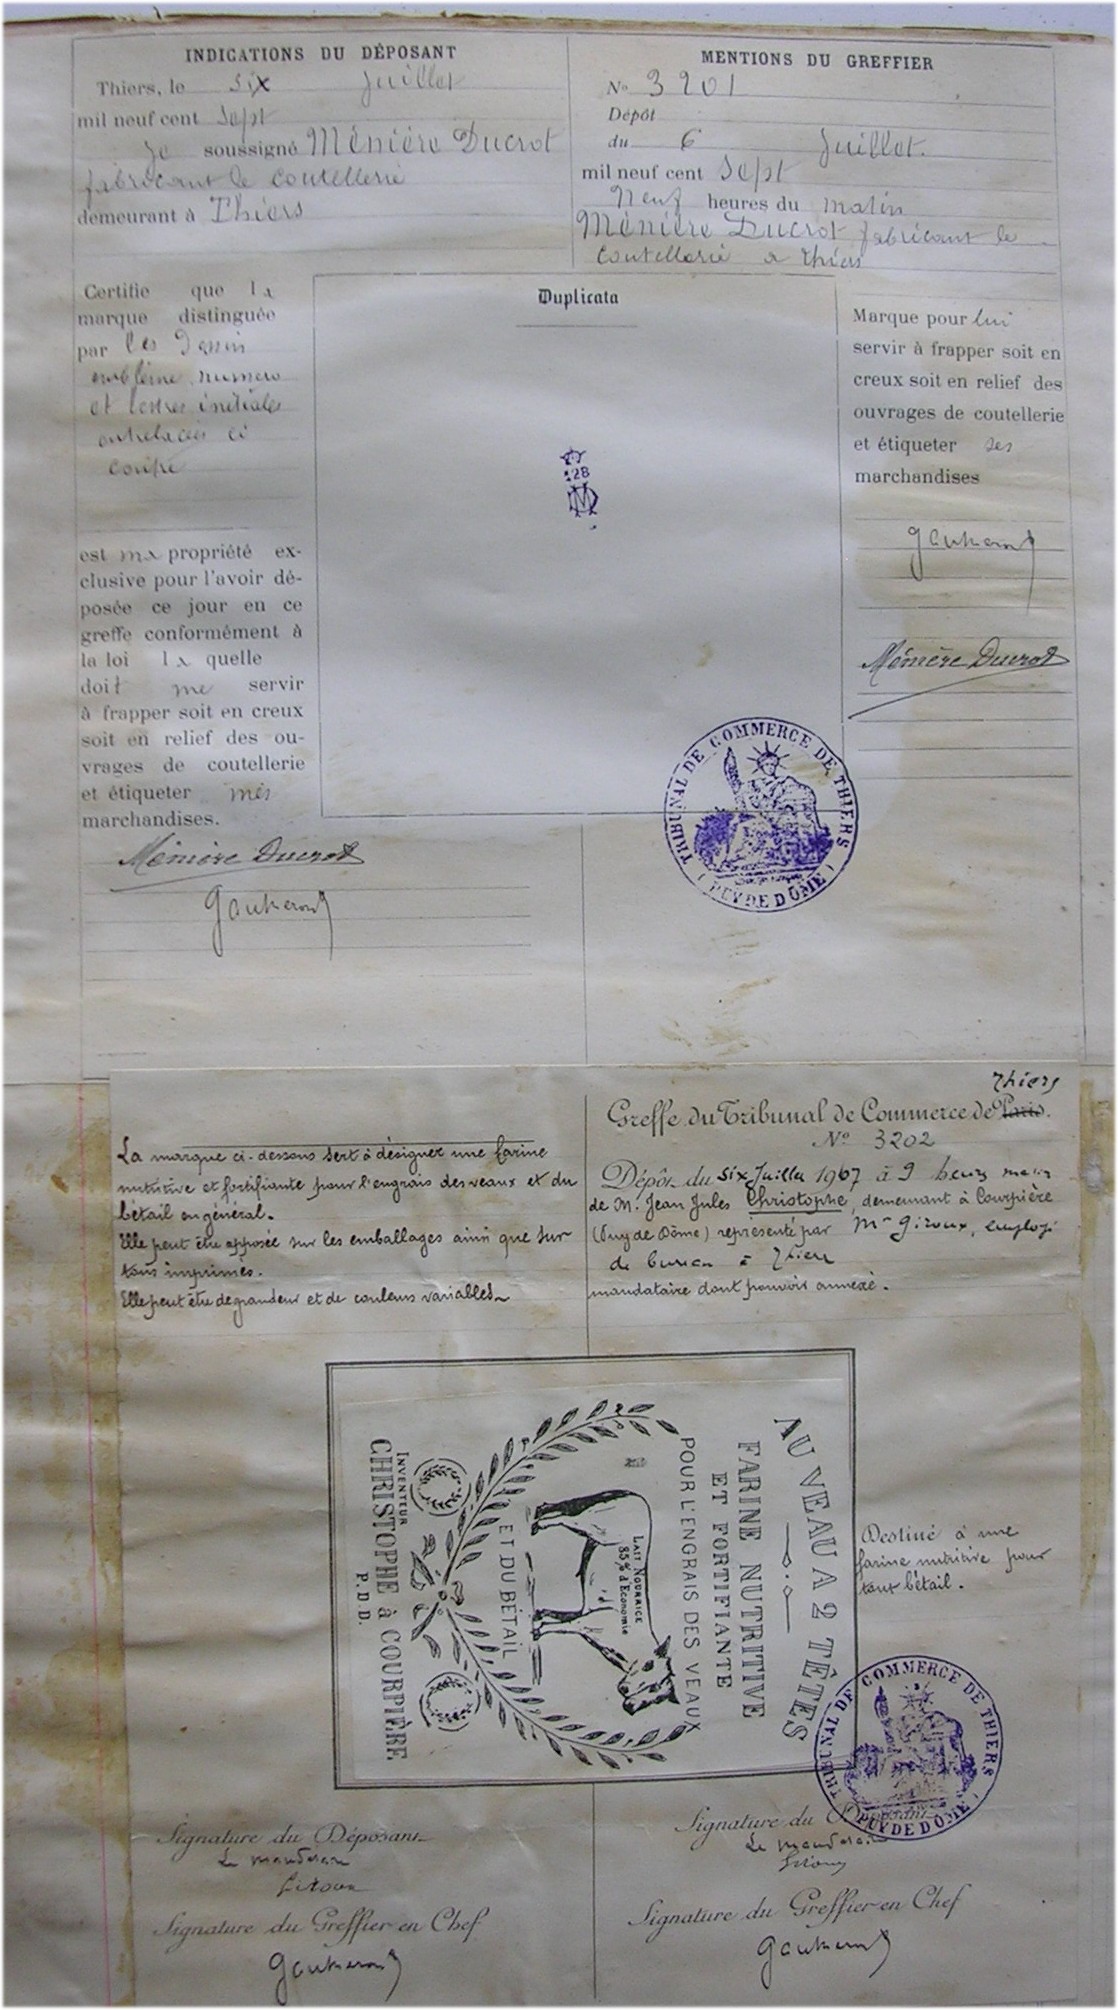 INDICATIONS DU DÉPOSANT
Thiers, le six Juillet
mil neuf cent sept
Je soussigné Ménière Ducrot
fabricant de coutellerie
demeurant à Thiers
MENTIONS DU GREFFIER
No 3201
Dépôt
du 6 Juillet.
mil neuf cent sept
Neuf heures du matin
Ménière Ducrot fabricant de
coutellerie a thiers
Certifie que la
marque distinguée
par les Dessin
emblème, numero
et lettres initiales
entrelacées ci
contre
est ma propriété ex-
clusive pour l'avoir dé-
posée ce jour en ce
greffe conformément à
la loi la quelle
doit me servir
à frapper soit en creux
soit en relief des ou-
vrages de coutellerie
et étiqueter mes
marchandises.
Ménière Ducrot
Duplicata
128
MD
Marque pour lui
servir à frapper soit en
creux soit en relief des
ouvrages de coutellerie
et étiqueter ses
marchandises
Ménière Ducrot
TRIBUNAL DE COMMERCE DE THIERS
(PUY DE DÔME)
La marque ci-dessous sert à désigner une farine
nutritive et fortifiante pour l'engrais des veaux et du
bétail en général.
Elle peut être apposée sur les emballages ainsi que sur
tous imprimés.
Elle peut être de grandeur et de couleurs variables.
Thiers
Greffe du Tribunal de Commerce de Paris.
No 3202
Dépôt du six Juillet 1907 à 9 heures matin
de M. Jean Jules Christophe, demeurant à Courpière
(Puy de Dôme) représenté par Mr Giroux, employé
de bureau à Thiers
mandataire dont pouvoir annexé.
AU VEAU A 2 TÊTES
FARINE NUTRITIVE
ET FORTIFIANTE
POUR L'ENGRAIS DES VEAUX
LAIT NOURRICE
85% d'Economie
ET DU BÉTAIL
INVENTEUR
CHRISTOPHE à COURPIÈRE
P.D.D.
Destiné à une
farine nutritive pour
tout bétail.
TRIBUNAL DE COMMERCE DE THIERS
(PUY DE DÔME)
Signature du Déposant
Le mandataire
Giroux
Signature du Greffier en Chef
Signature du Déposant
Le mandataire
Giroux
Signature du Greffier en Chef